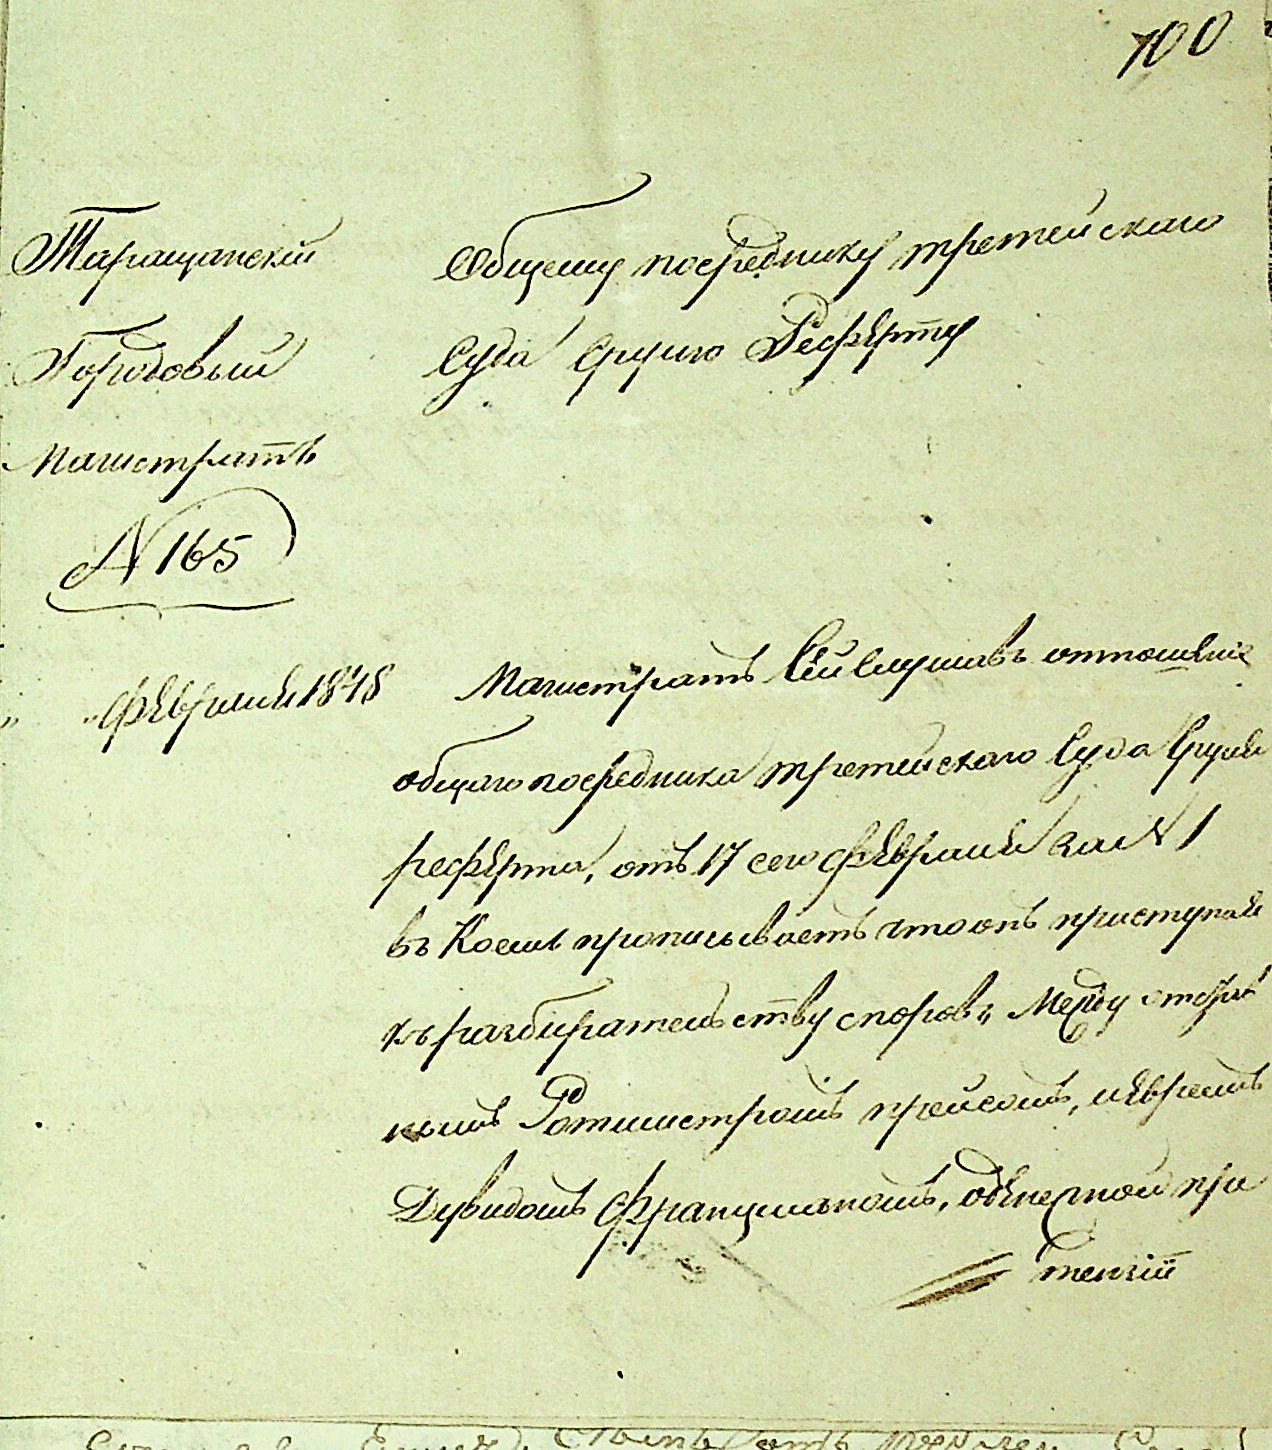 100
Таращанскій
Городовый
Магистратъ
N 165
Февраля 1848
Общему посреднику третейскаго
Суда Срулю Реферту
Магистратъ Сей слушавъ отношеніе
общаго посредника третейскаго Суда Сруля
реферта, отъ 17 сего февраля за N 1
въ Коемъ прописываетъ что онъ приступая
къ разбирательству споровъ, Между
Ротмистромъ прейсомъ, и евреемъ
Дувидомъ Францманомъ, об
тензій